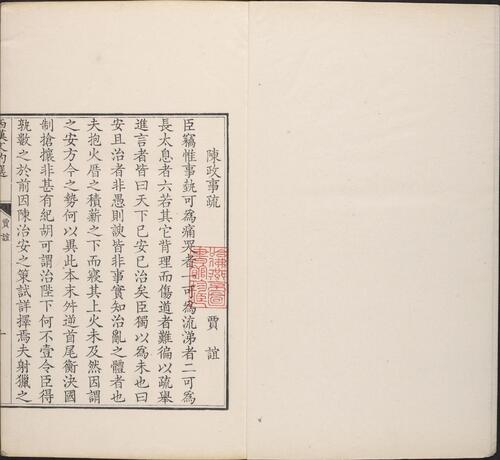 陳政事疏　賈誼
臣竊惟事埶可為痛哭者一可為流涕者二可為
長太息者六若其它背理而傷道者難徧以疏舉
進言者皆曰天下已安已治矣臣獨以為未也曰
安且治者非愚則諛皆非事實知治亂之體者也
夫抱火厝之積薪之下而寢其上火未及然因謂
之安方今之勢何以異此本末舛逆首尾衡決國
制搶攘非甚有紀胡可謂治陛下何不壹令臣得
孰數之於前因陳治安之策試詳擇焉夫射獵之
西漢文約選　賈誼　一